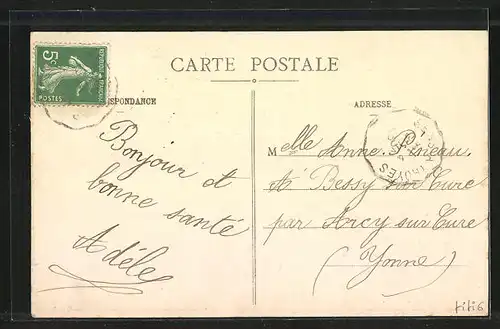 CARTE POSTALE
5c
REPUBLIQUE FRANÇAISE
POSTES
SPONDANCE
Bonjour et
bonne santé
Adèle
ADRESSE
Melle Anne Pineau
A Bessy sur Cure
par Arcy sur Cure
(Yonne)
TROYES